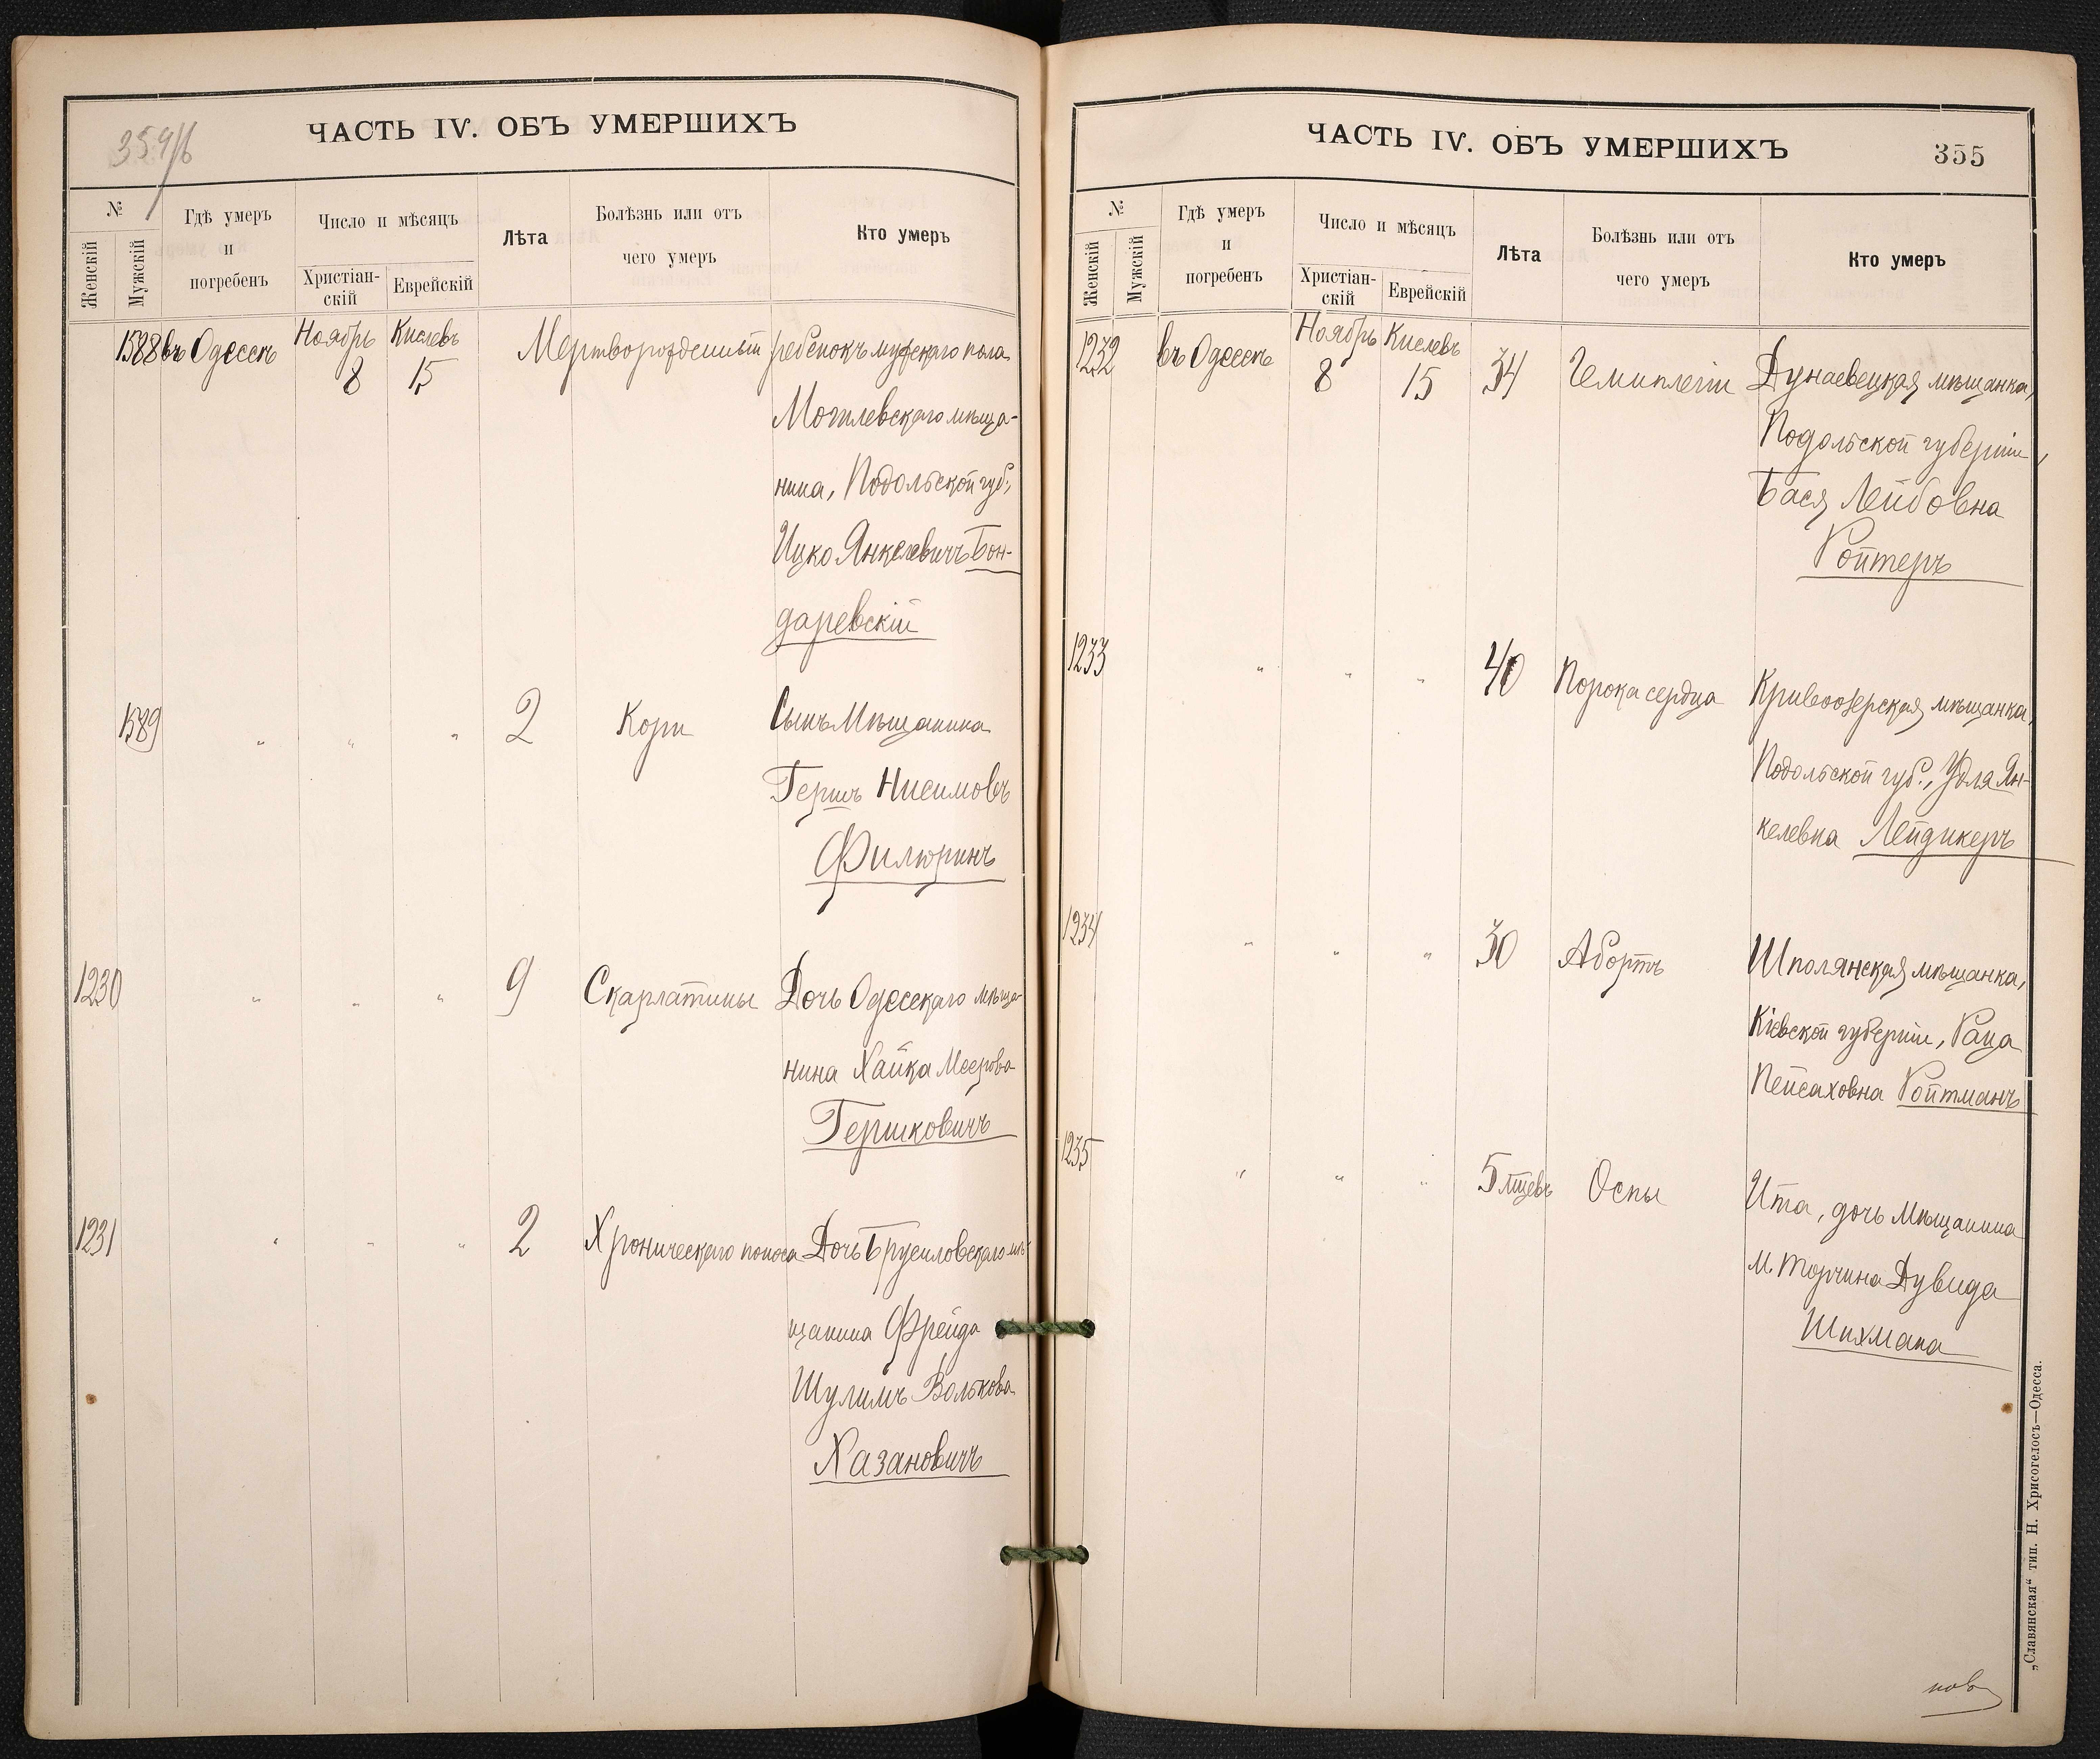 354/б
ЧАСТЬ IV. ОБЪ УМЕРШИХЪ
№
Женскій
Мужскій
Гдѣ умеръ
и
погребенъ
Число и мѣсяцъ
Христіан-
скій
Еврейскій
Лѣта
Болѣзнь или отъ
чего умеръ
Кто умеръ
1588 въ Одессѣ Ноябрь 8 Кислевъ 15 Мертворожденный ребенокъ мужскаго пола
Могилевскаго мѣща-
нина, Подольской губ.,
Ицко Янкелевичъ Бон-
даревскій
1589 " " " 2 Кори Сынъ Мѣщанина
Гершъ Нисимовъ
Филюринъ
1230 " " " 9 Скарлатины Дочь Одесскаго мѣща-
нина Хайка Меерова
Гершковичъ
1231 " " " 2 Хроническаго поноса Дочь Брусиловскаго мѣ-
щанина Фрейда
Шулимъ Волькова
Хазановичъ
ЧАСТЬ IV. ОБЪ УМЕРШИХЪ
355
№
Женскій
Мужскій
Гдѣ умеръ
и
погребенъ
Число и мѣсяцъ
Христіан-
скій
Еврейскій
Лѣта
Болѣзнь или отъ
чего умеръ
Кто умеръ
1232 въ Одессѣ Ноябрь 8 Кислевъ 15 34 Гемиплегіи Дунаевецкая мѣщанка,
Подольской губерніи,
Бася Лейбовна
Ройтеръ
1233 " " " 40 Порока сердца Кривоозерская мѣщанка,
Подольской губ., Удля Ян-
келевна Лейдикеръ
1234 " " " 30 Абортъ Шполянская мѣщанка,
Кіевской губерніи, Раца
Пейсаховна Ройтманъ
1235 " " " 5 мцевъ Оспы Ита, дочь Мѣщанина
м. Торчина Дувида
Шихмана
„Славянская“ тип. Н. Хрисогелосъ—Одесса.